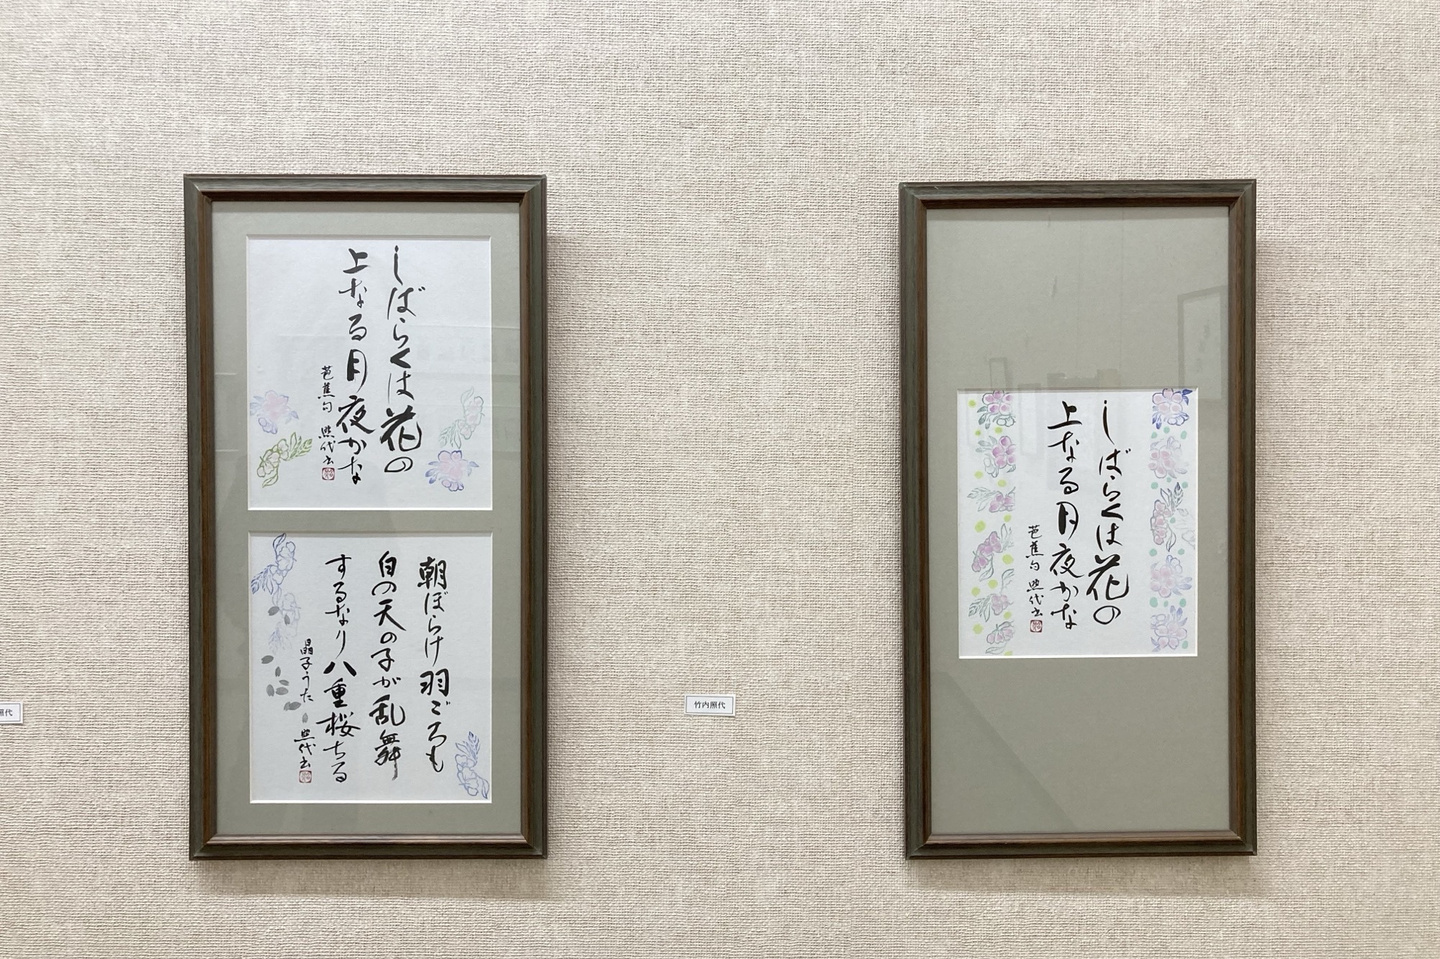 しばらくは花の
上なる月夜かな
芭蕉句 照代书
朝ぼらけ羽ごろも
白の天の子が乱舞
するなり八重桜ちる
晶子うた 照代书
照代
竹内照代
しばらくは花の
上なる月夜かな
芭蕉句 照代书